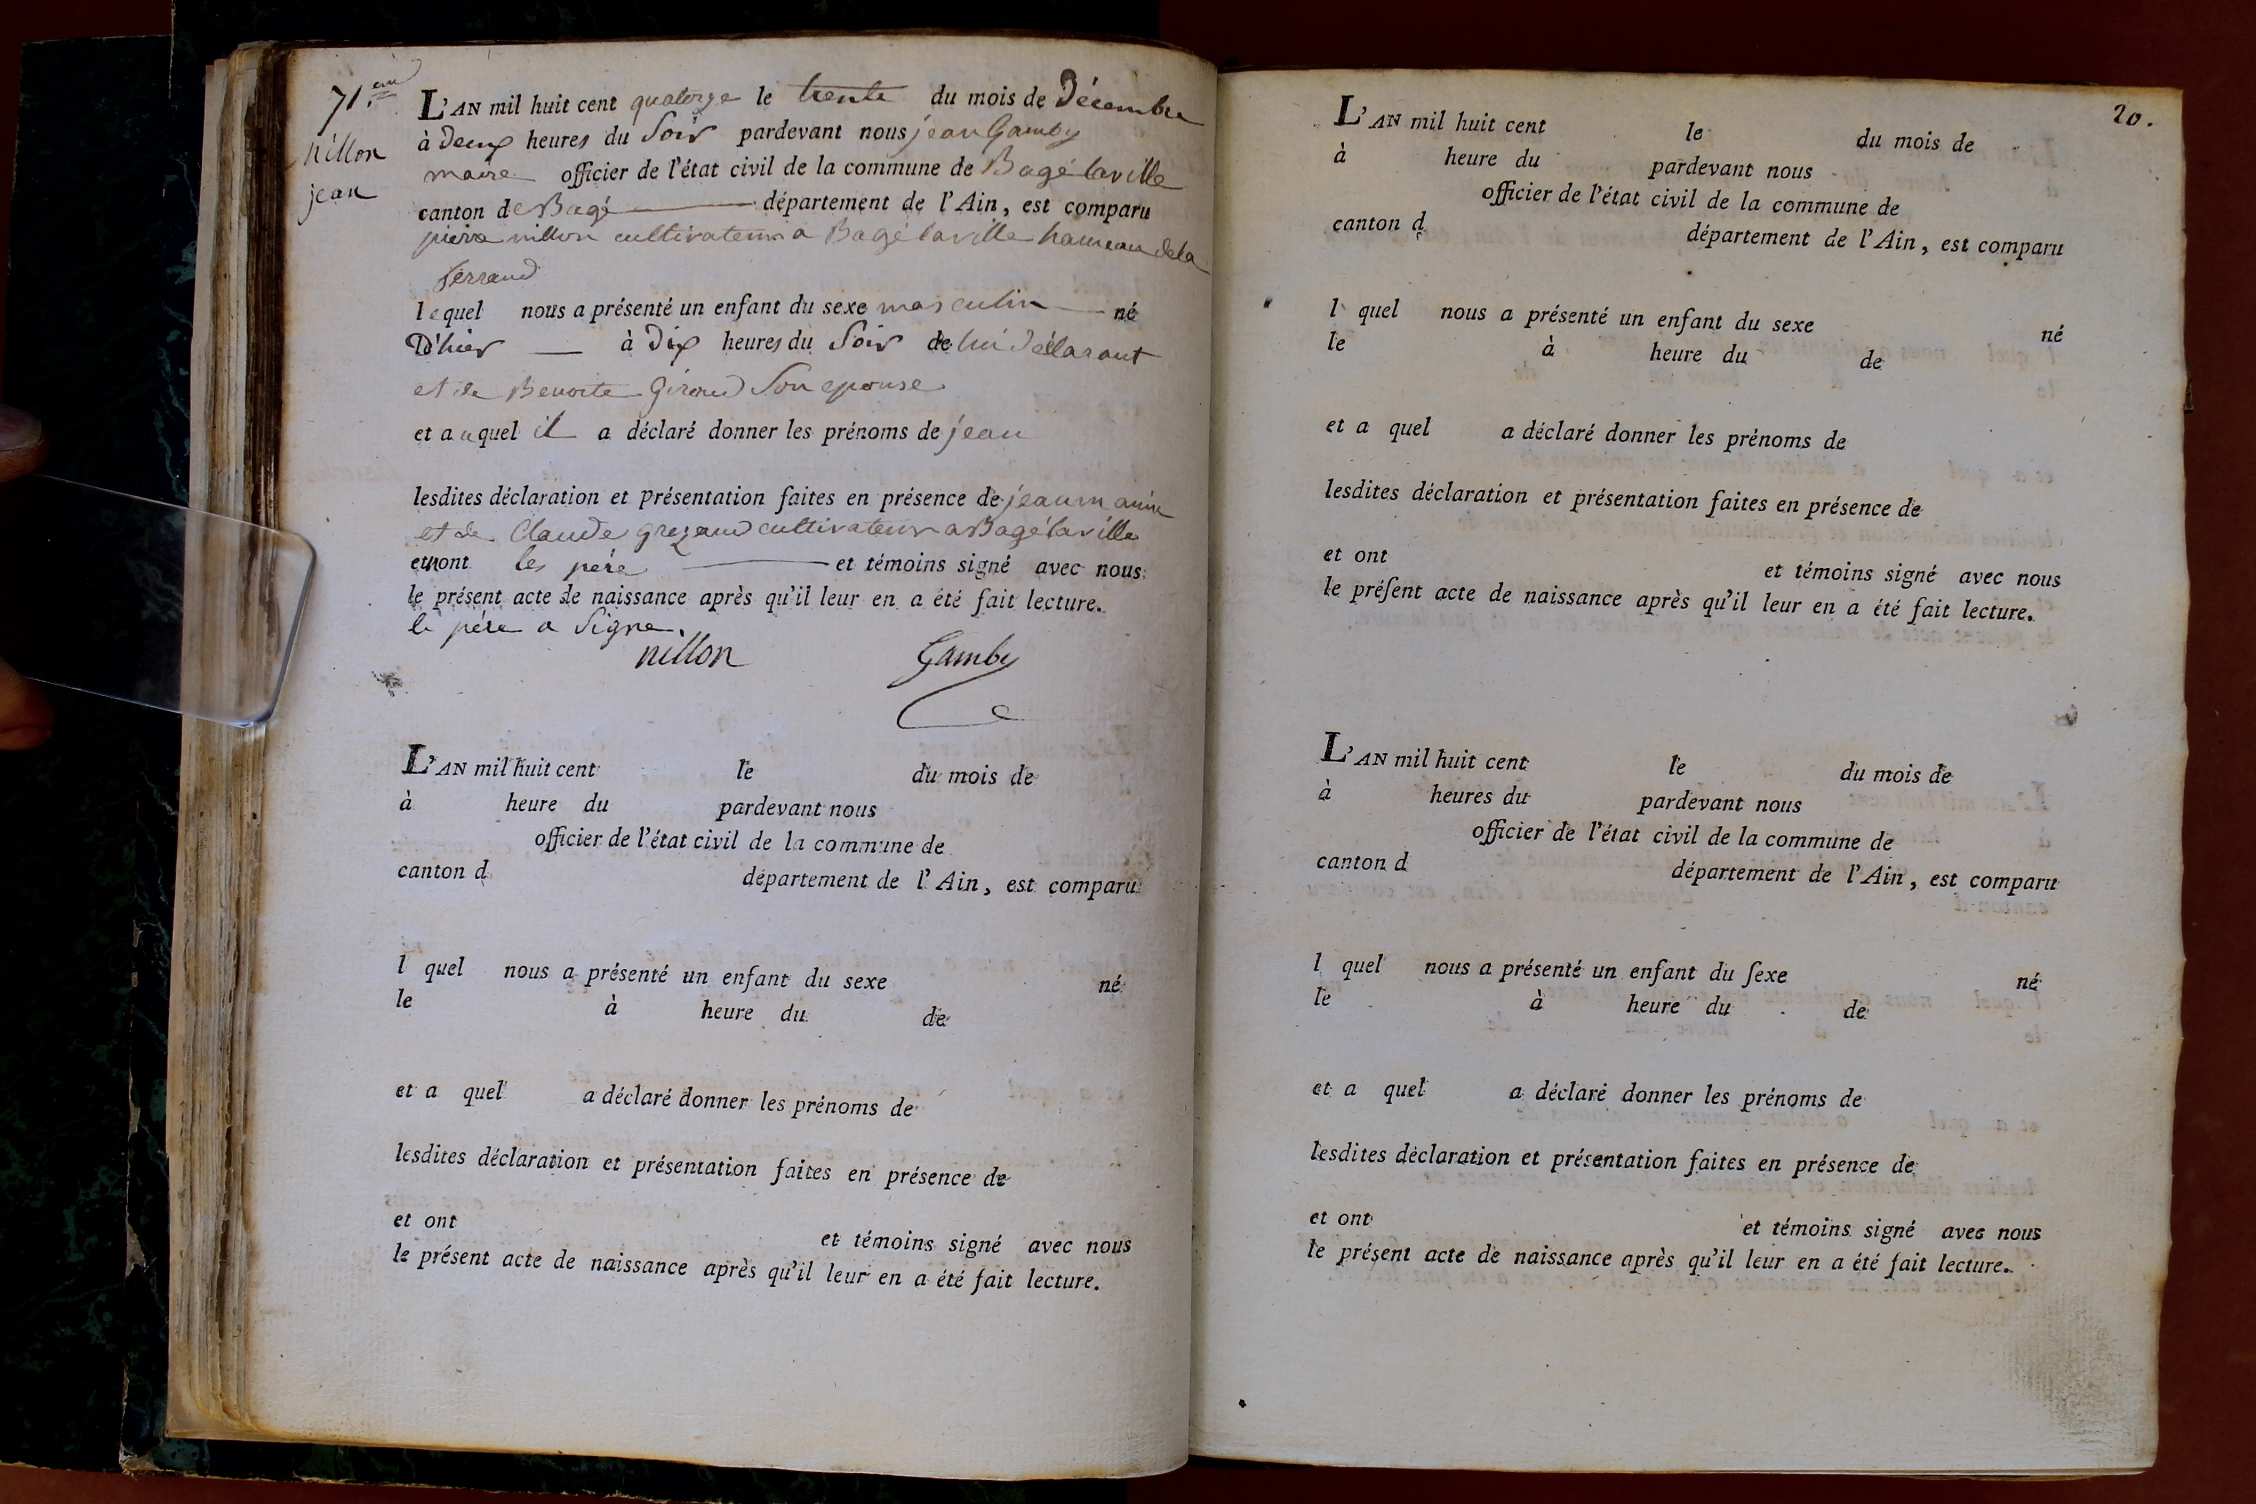 71.eme
Nillon
jean
L'AN mil huit cent quatorze le trente du mois de Décembre
à Deux heures du Soir pardevant nous jean Gamby
maire officier de l'état civil de la commune de Bagé laville
canton de Bagé département de l'Ain, est comparu
pierre nillon cultivateur a Bagé laville hameau de la
Serraud
lequel nous a présenté un enfant du sexe masculin né
D'hier à Dix heures du Soir de lui déclarant
et de Benoite Giroud Son epouse
et auquel il a déclaré donner les prénoms de jean
lesdites déclaration et présentation faites en présence de jean
et de Claude grezaud cultivateur a Bagé laville
et ont les père et témoins signé avec nous
le présent acte de naissance après qu'il leur en a été fait lecture.
le pére a Signe.
nillon Gamby
L'AN mil huit cent le du mois de
à heure du pardevant nous
officier de l'état civil de la commune de
canton d département de l'Ain, est comparu
l quel nous a présenté un enfant du sexe né
le à heure du de
et a quel a déclaré donner les prénoms de
lesdites déclaration et présentation faites en présence de
et ont et témoins signé avec nous
le présent acte de naissance après qu'il leur en a été fait lecture.
20.
L'AN mil huit cent le du mois de
à heure du pardevant nous
officier de l'état civil de la commune de
canton d département de l'Ain, est comparu
l quel nous a présenté un enfant du sexe né
le à heure du de
et a quel a déclaré donner les prénoms de
lesdites déclaration et présentation faites en présence de
et ont et témoins signé avec nous
le préſent acte de naissance après qu'il leur en a été fait lecture.
L'AN mil huit cent le du mois de
à heures du pardevant nous
officier de l'état civil de la commune de
canton d département de l'Ain, est comparu
l quel nous a présenté un enfant du ſexe né
le à heure du de
et a quel a déclaré donner les prénoms de
lesdites déclaration et présentation faites en présence de
et ont et témoins signé avec nous
le présent acte de naissance après qu'il leur en a été fait lecture.